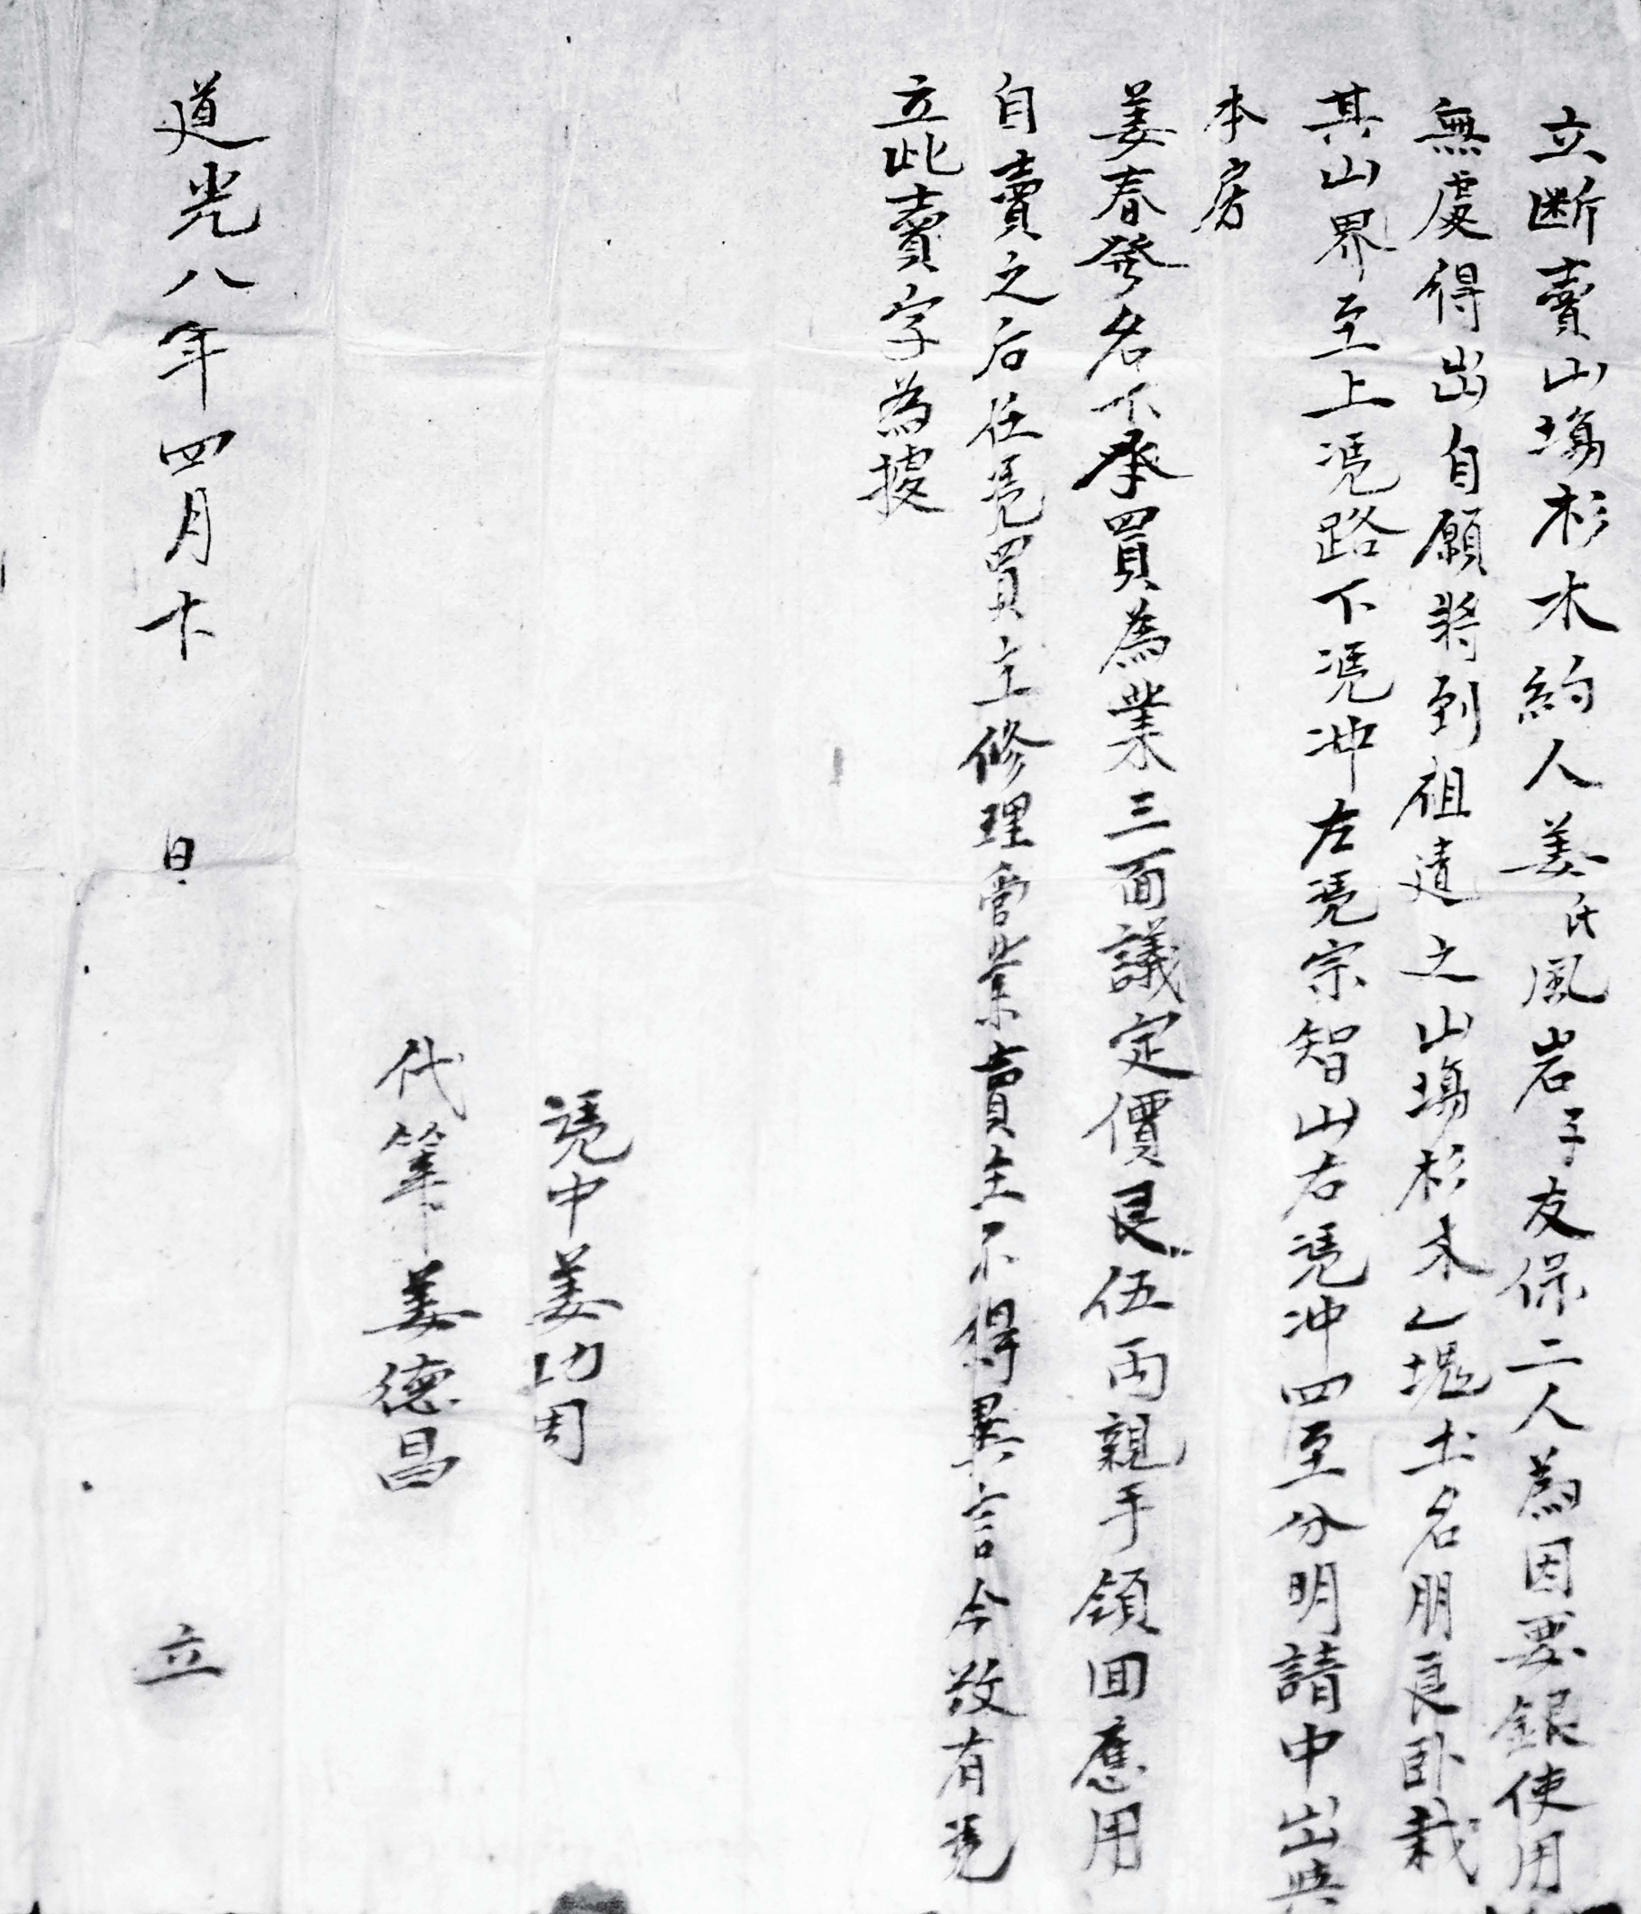 立断賣山塲杉木約人姜氏風岩子友保二人為因要銀使用
無處得出自願將到祖遺之山塲杉木乙塊土名朋良卧栽
其山界至上凴路下凴冲左凴宗智山右凴冲四至分明請中出與
本房
姜春發名下承買為業三面議定價艮伍両親手領囬應用
自賣之后任凴買主修理管業賣主不得異言今欲有凴
立此賣字為據
凴中姜功周
代筆姜德昌
道光八年四月 日 立